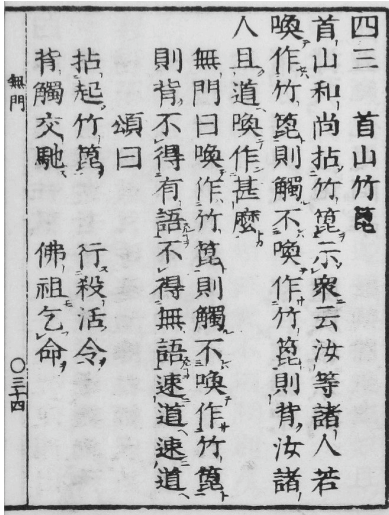 四三　首山竹篦
首山和尚拈竹篦示衆云汝等諸人若
喚作竹篦則觸不喚作竹篦則背汝諸
人且道喚作甚麼
無門曰喚作竹篦則觸不喚作竹篦
則背不得有語不得無語速道速道
頌曰
拈起竹篦　行殺活令
背觸交馳　佛祖乞命
無門　〇三十四